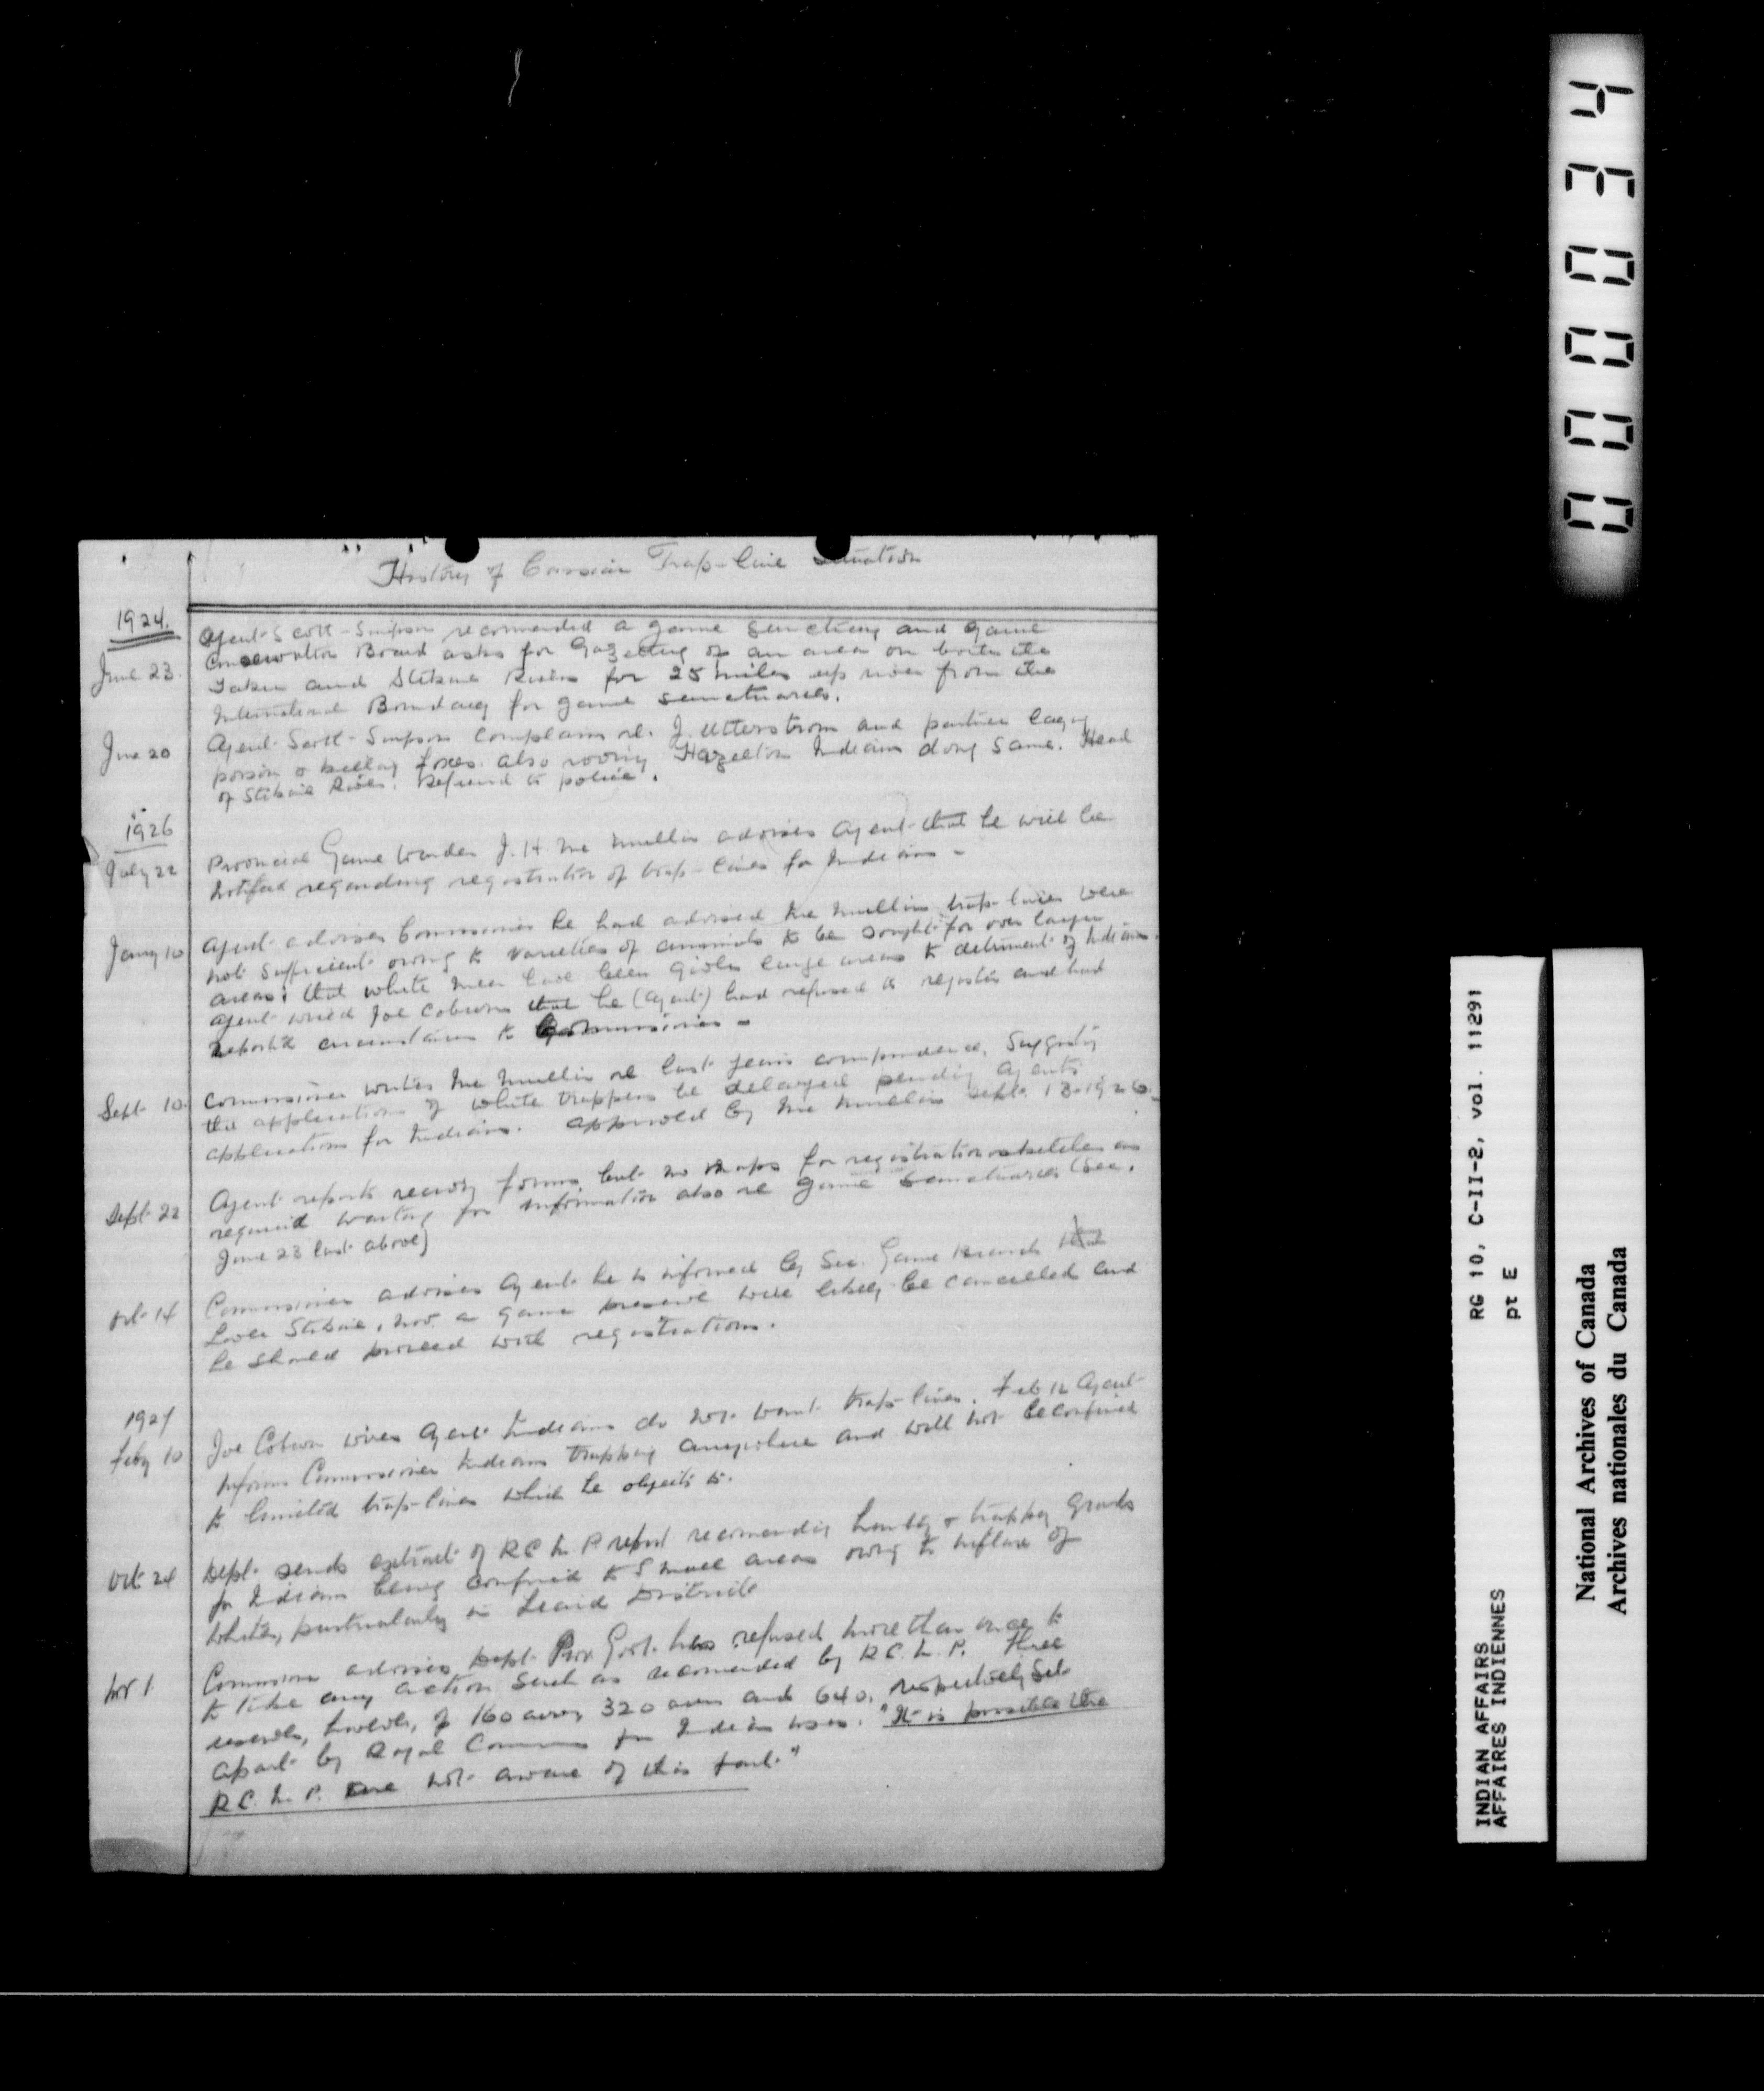 History of Cassiar Trap-line situation
1924.
June 23. Agent Scott-Simpson recommended a game sanctuary and Game
Conservation Board asks for Gazetting of an area on both the
Taku and Stikine Rivers for 25 miles up river from the
International Boundary for game sanctuaries.
June 20 Agent Scott-Simpson complains re. J. Utterstrom and partner laying
poison & killing foxes also roving Hazelton Indians doing same. Head
of Stikine River. Referred to police.
1926
July 22 Provincial Game Warden J. H. McMullin advises agent that he will be
notified regarding registration of trap-lines for Indians -
Jany 10 Agent advises Commissioner he had advised McMullin trap-lines were
not sufficient owing to varieties of animals to be sought for over larger
areas; that white men have been given large areas to detriment of Indians.
Agent wired Joe Coburn that he (Agent) had refused to register and had
reported circumstances to Commissioner -
Sept 10. Commissioner writes McMullin re last years correspondence, suggesting
the applications of white trappers be delayed pending agents
applications for Indians. Approved by McMullin Sept. 13-1926.
Sept 22 Agent reports receiving forms but no maps for registration sketches as
required waiting for information also re game sanctuaries (See.
June 23 last above)
Oct-14 Commissioner advises agent he is informed by Sec. Game Branch that
Lower Stikine, now a game preserve will likely be cancelled and
he should proceed with registrations.
1927
Feby 10 Joe Coburn wires Agent Indians do not want trap-lines. Feb 12 Agent
informs Commissioner Indians trapping anywhere and will not be confined
to limited trap-lines which he objects to.
Oct 24 Dept. sends extract of RCMP report recomending hunting & trapping grounds
for Indians being confined to small areas owing to influx of
whites, particularly in Liard District
Nov 1. Commissioner advises Dept. Prov. Govt. has refused more than once to
to take any action such as recomended by R.C.M.P. Three
reserves, however, of 160 acres, 320 acres and 640, respectively set
apart by Royal Commission for Indian uses. "It is possible the
R.C.M.P. are not aware of this fact."
000034
RG 10, C-II-2, vol. 11291
pt E
INDIAN AFFAIRS
AFFAIRES INDIENNES
National Archives of Canada
Archives nationales du Canada